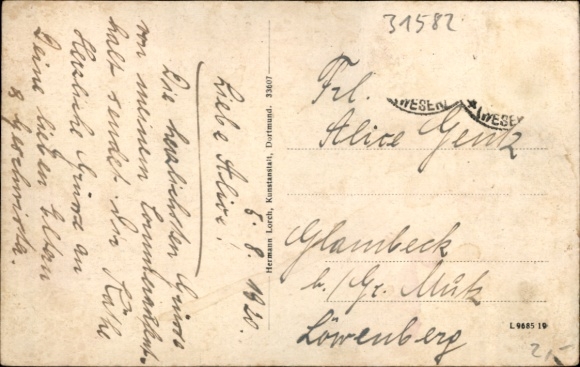 31582
5. 8. 1920.
Liebe Alice!
Die herzlichsten Grüsse
von meinem Sommeraufent-
halt sendet dir Käthe
Herzliche Grüsse an
Deine lieben Eltern
& Geschwister.
Hermann Lorch, Kunstanstalt, Dortmund. 33607
Frl.
Alice Gentz
(WESER)
* (WESER
Glambeck
b./Gr. Mutz
Löwenberg
L 9685 19
2,-